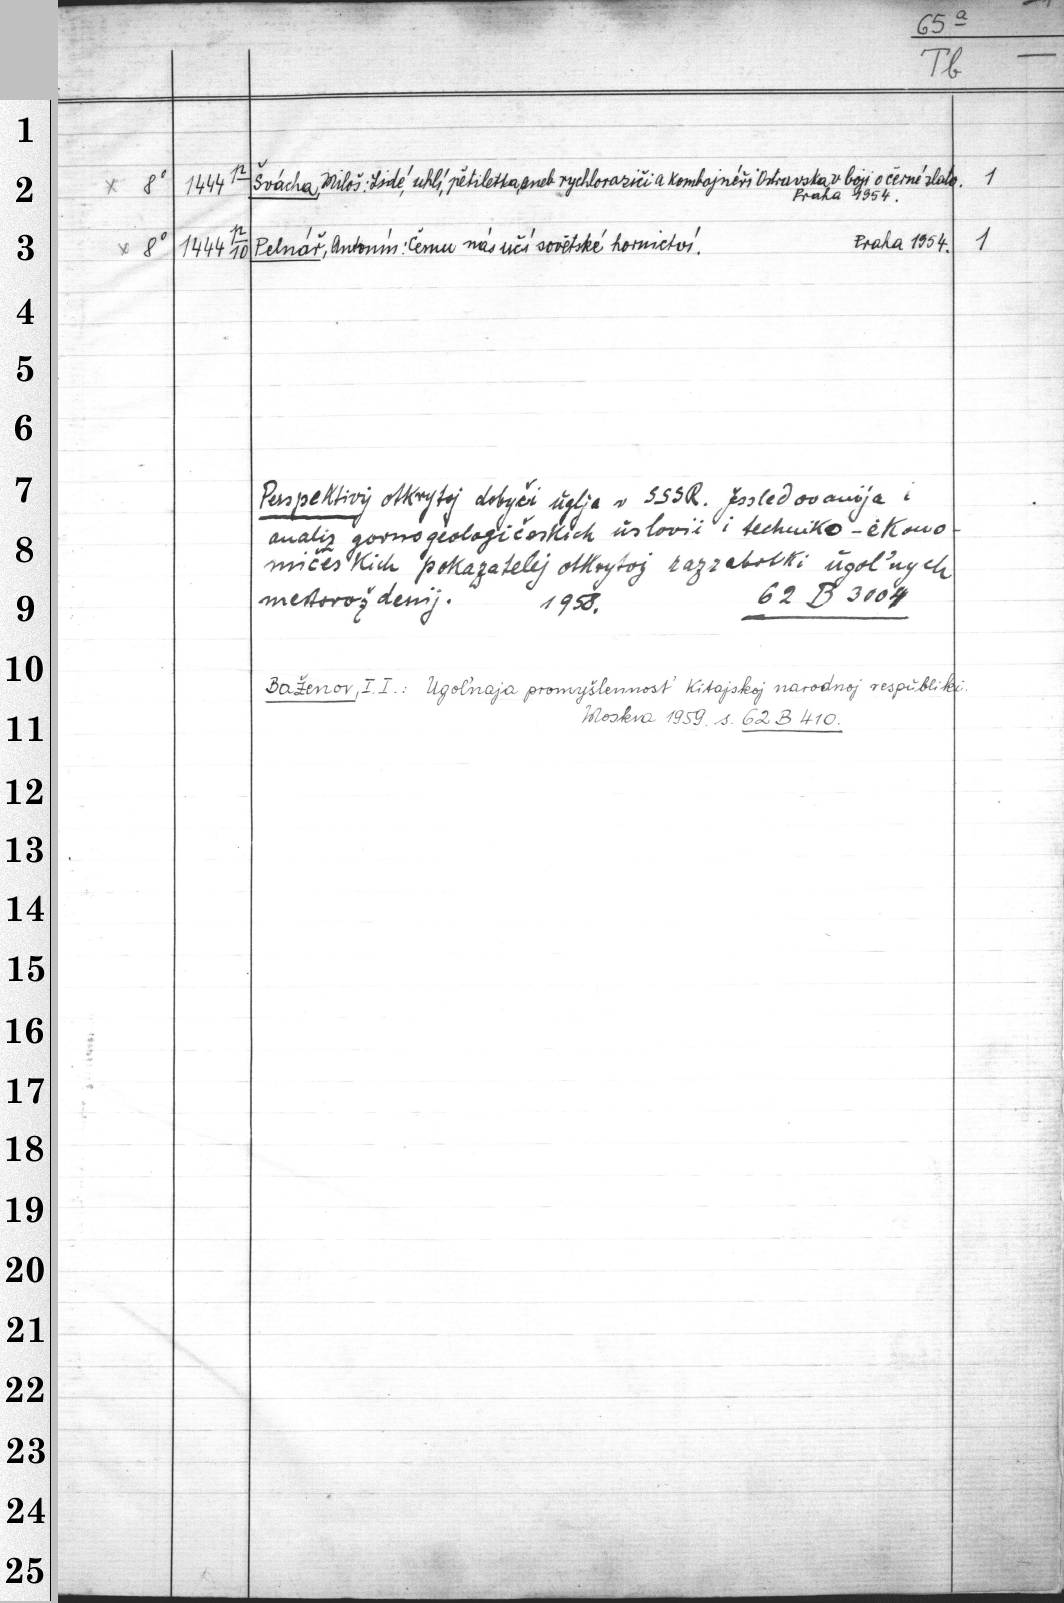 65 a
Tb —
1
2 x 8° 1444 n Švácha, Miloš: Lidé, uhlí, pětiletka, aneb rychloraziči a kombajnéři Ostravska v boji o černé zlato. 1
Praha 1954.
3 x 8° 1444 n/10 Pelnář, Antonín: Čemu nás učí sovětské hornictví. Praha 1954. 1
4
5
6
7 Perspektivy otkrytoj dobyči uglja v SSSR. Issledovanija i
analiz gornogeologičeskich uslovii i techniko-ekono-
8
mičeskich pokazatelej otkrytoj razrabotki ugol'nych
9 mestoroždenij. 1958. 62 B 3004
10
Baženov, I. I.: Ugol'naja promyšlennost' Kitajskoj narodnoj respubliki.
11 Moskva 1959. s. 62 B 410.
12
13
14
15
16
17
18
19
20
21
22
23
24
25